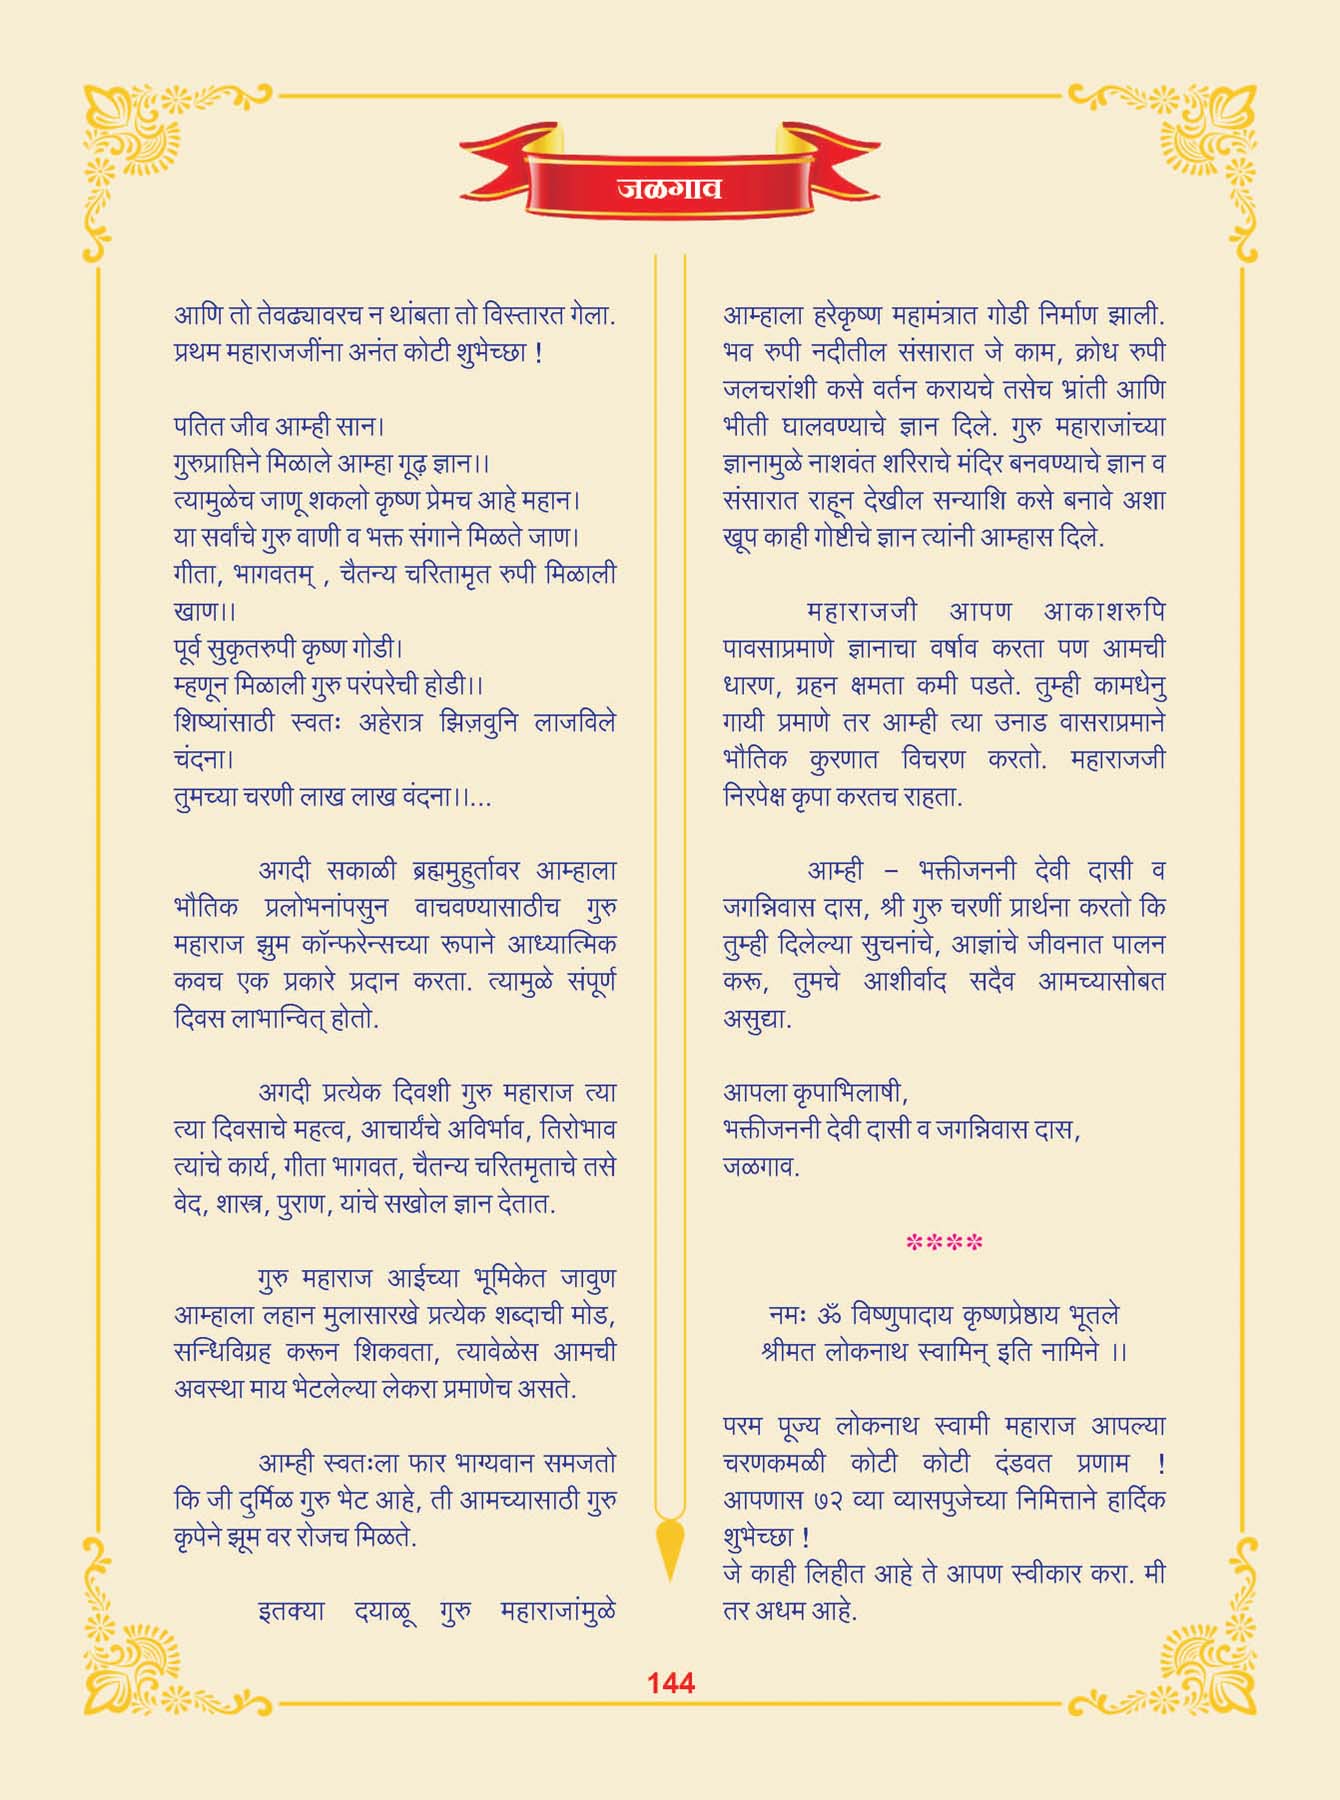 जळगाव
आणि तो तेवढ्यावरच न थांबता तो विस्तारत गेला.
प्रथम महाराजजींना अनंत कोटी शुभेच्छा !
पतित जीव आम्ही सान।
गुरुप्राप्तिने मिळाले आम्हा गूढ़ ज्ञान।।
त्यामुळेच जाणू शकलो कृष्ण प्रेमच आहे महान।
या सर्वांचे गुरु वाणी व भक्त संगाने मिळते जाण।
गीता, भागवतम् , चैतन्य चरितामृत रुपी मिळाली
खाण।।
पूर्व सुकृतरुपी कृष्ण गोडी।
म्हणून मिळाली गुरु परंपरेची होडी।।
शिष्यांसाठी स्वतः अहेरात्र झिज़वुनि लाजविले
चंदना।
तुमच्या चरणी लाख लाख वंदना।।...
अगदी सकाळी ब्रह्ममुहुर्तावर आम्हाला
भौतिक प्रलोभनांपसुन वाचवण्यासाठीच गुरु
महाराज झुम कॉन्फरेन्सच्या रूपाने आध्यात्मिक
कवच एक प्रकारे प्रदान करता. त्यामुळे संपूर्ण
दिवस लाभान्वित् होतो.
अगदी प्रत्येक दिवशी गुरु महाराज त्या
त्या दिवसाचे महत्व, आचार्यंचे अविर्भाव, तिरोभाव
त्यांचे कार्य, गीता भागवत, चैतन्य चरितमृताचे तसे
वेद, शास्त्र, पुराण, यांचे सखोल ज्ञान देतात.
गुरु महाराज आईच्या भूमिकेत जावुण
आम्हाला लहान मुलासारखे प्रत्येक शब्दाची मोड,
सन्धिविग्रह करून शिकवता, त्यावेळेस आमची
अवस्था माय भेटलेल्या लेकरा प्रमाणेच असते.
आम्ही स्वतःला फार भाग्यवान समजतो
कि जी दुर्मिळ गुरु भेट आहे, ती आमच्यासाठी गुरु
कृपेने झूम वर रोजच मिळते.
इतक्या दयाळू गुरु महाराजांमुळे
आम्हाला हरेकृष्ण महामंत्रात गोडी निर्माण झाली.
भव रुपी नदीतील संसारात जे काम, क्रोध रुपी
जलचरांशी कसे वर्तन करायचे तसेच भ्रांती आणि
भीती घालवण्याचे ज्ञान दिले. गुरु महाराजांच्या
ज्ञानामुळे नाशवंत शरिराचे मंदिर बनवण्याचे ज्ञान व
संसारात राहून देखील सन्याशि कसे बनावे अशा
खूप काही गोष्टीचे ज्ञान त्यांनी आम्हास दिले.
महाराजजी आपण आकाशरुपि
पावसाप्रमाणे ज्ञानाचा वर्षाव करता पण आमची
धारण, ग्रहन क्षमता कमी पडते. तुम्ही कामधेनु
गायी प्रमाणे तर आम्ही त्या उनाड वासराप्रमाने
भौतिक कुरणात विचरण करतो. महाराजजी
निरपेक्ष कृपा करतच राहता.
आम्ही – भक्तीजननी देवी दासी व
जगन्निवास दास, श्री गुरु चरणीं प्रार्थना करतो कि
तुम्ही दिलेल्या सुचनांचे, आज्ञांचे जीवनात पालन
करू, तुमचे आशीर्वाद सदैव आमच्यासोबत
असुद्या.
आपला कृपाभिलाषी,
भक्तीजननी देवी दासी व जगन्निवास दास,
जळगाव.
****
नमः ॐ विष्णुपादाय कृष्णप्रेष्ठाय भूतले
श्रीमत लोकनाथ स्वामिन् इति नामिने ।।
परम पूज्य लोकनाथ स्वामी महाराज आपल्या
चरणकमळी कोटी कोटी दंडवत प्रणाम !
आपणास ७२ व्या व्यासपुजेच्या निमित्ताने हार्दिक
शुभेच्छा !
जे काही लिहीत आहे ते आपण स्वीकार करा. मी
तर अधम आहे.
144